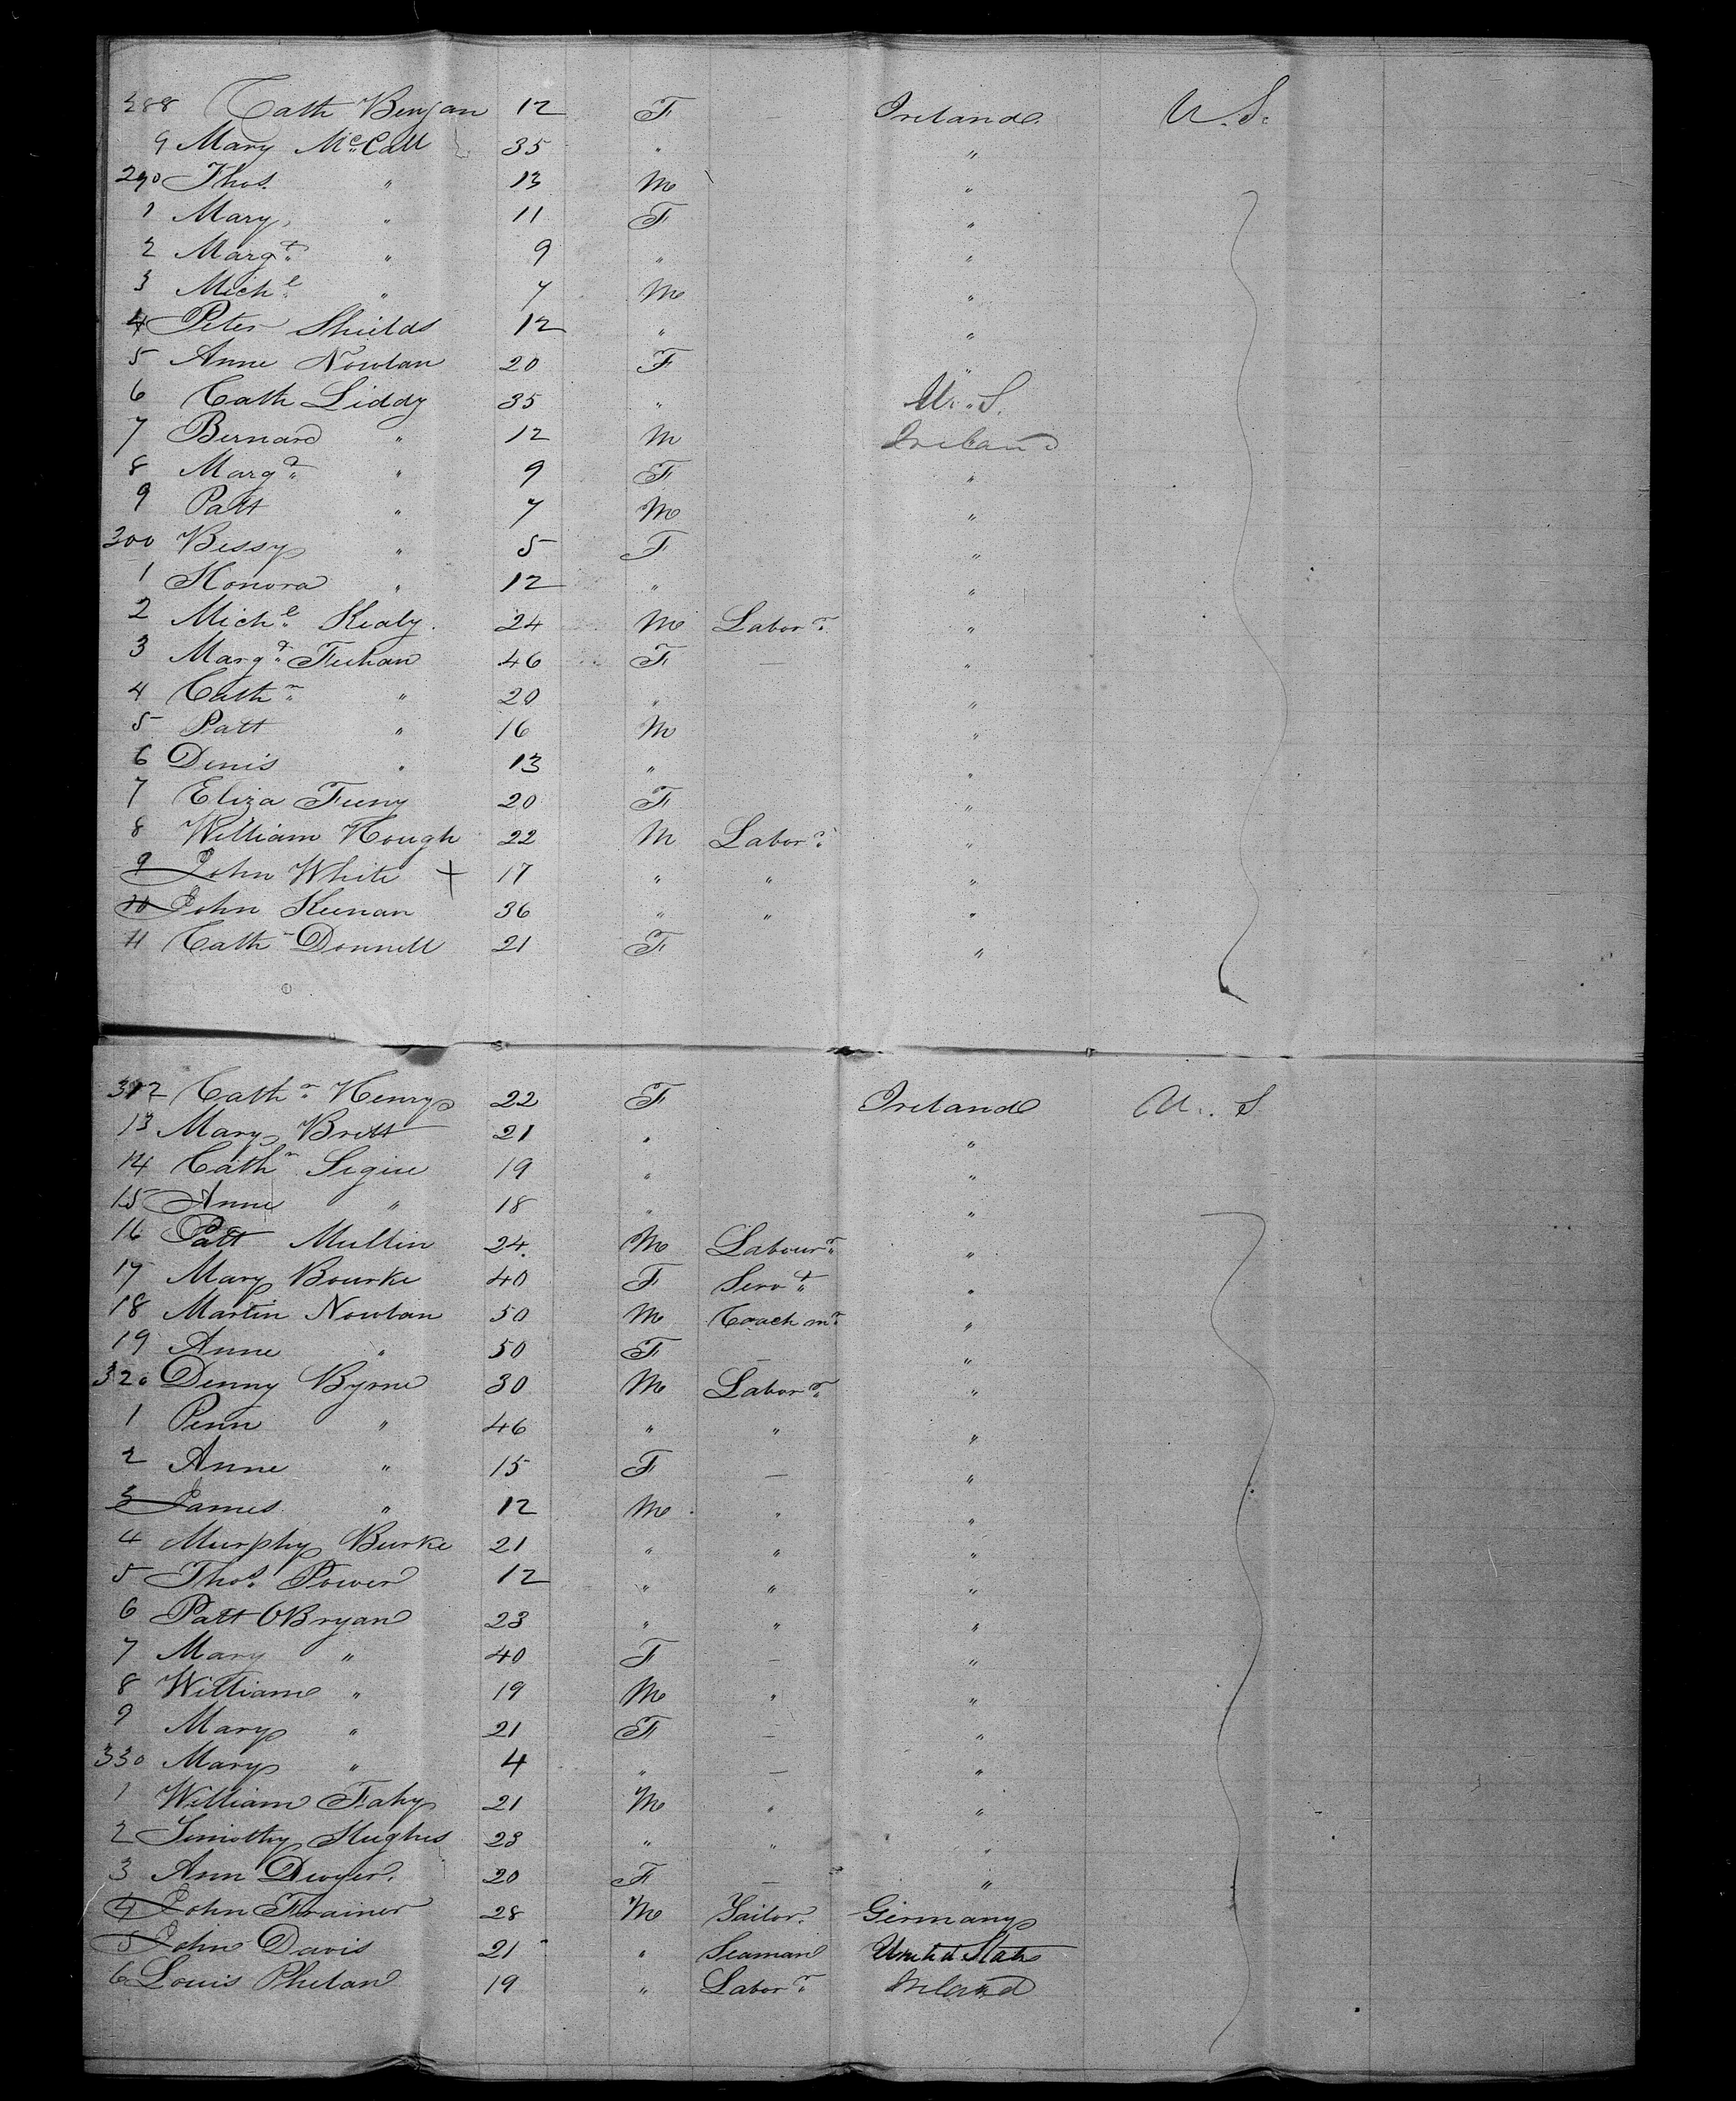 288 Cath Benjan 12 F — Ireland U. S.
9 Mary McCall 35 " "
290 Thos. " 13 M "
1 Mary " 11 F "
2 Margt " 9 " "
3 Michl " 7 M "
4 Peter Shields 12 " "
5 Anne Nowlan 20 F "
6 Cath Liddy 35 " U. S.
7 Bernard " 12 M Ireland
8 Margt " 9 F "
9 Patt " 7 M "
300 Bessy " 5 F "
1 Honora " 12 " "
2 Michl Kealy 24 M Labor r "
3 Margt Feehan 46 F — "
4 Cathn " 20 " "
5 Patt " 16 M "
6 Denis " 13 " "
7 Eliza Feeny 20 F "
8 William Hough 22 M Labor r "
9 John White + 17 " " "
10 John Keenan 36 " " "
11 Cath Donnell 21 F "
312 Cathn Henry 22 F Ireland U. S
13 Mary Brett 21 " "
14 Cathn 19 " "
15 Anne " 18 " "
16 Patt Mullin 24 M Labour r "
17 Mary Bourke 40 F Servt "
18 Martin Nowlan 50 M Coach mr "
19 Anne " 50 F — "
320 Denny Byrne 30 M Labor r "
1 Penn " 46 " " "
2 Anne " 15 F — "
3 James " 12 M " "
4 Murphy Burke 21 " " "
5 Thos. Power 12 " " "
6 Patt OBryan 23 " " "
7 Mary " 40 F — "
8 William " 19 M " "
9 Mary " 21 F — "
330 Mary " 4 " — "
1 William Fahy 21 M " "
2 Timothy Hughes 23 " " "
3 Ann Dwyer 20 F — "
4 John Frainer 28 M Tailor Germany
5 John Davis 21 " Seaman United States
6 Louis Phelan 19 " Labor r Ireland